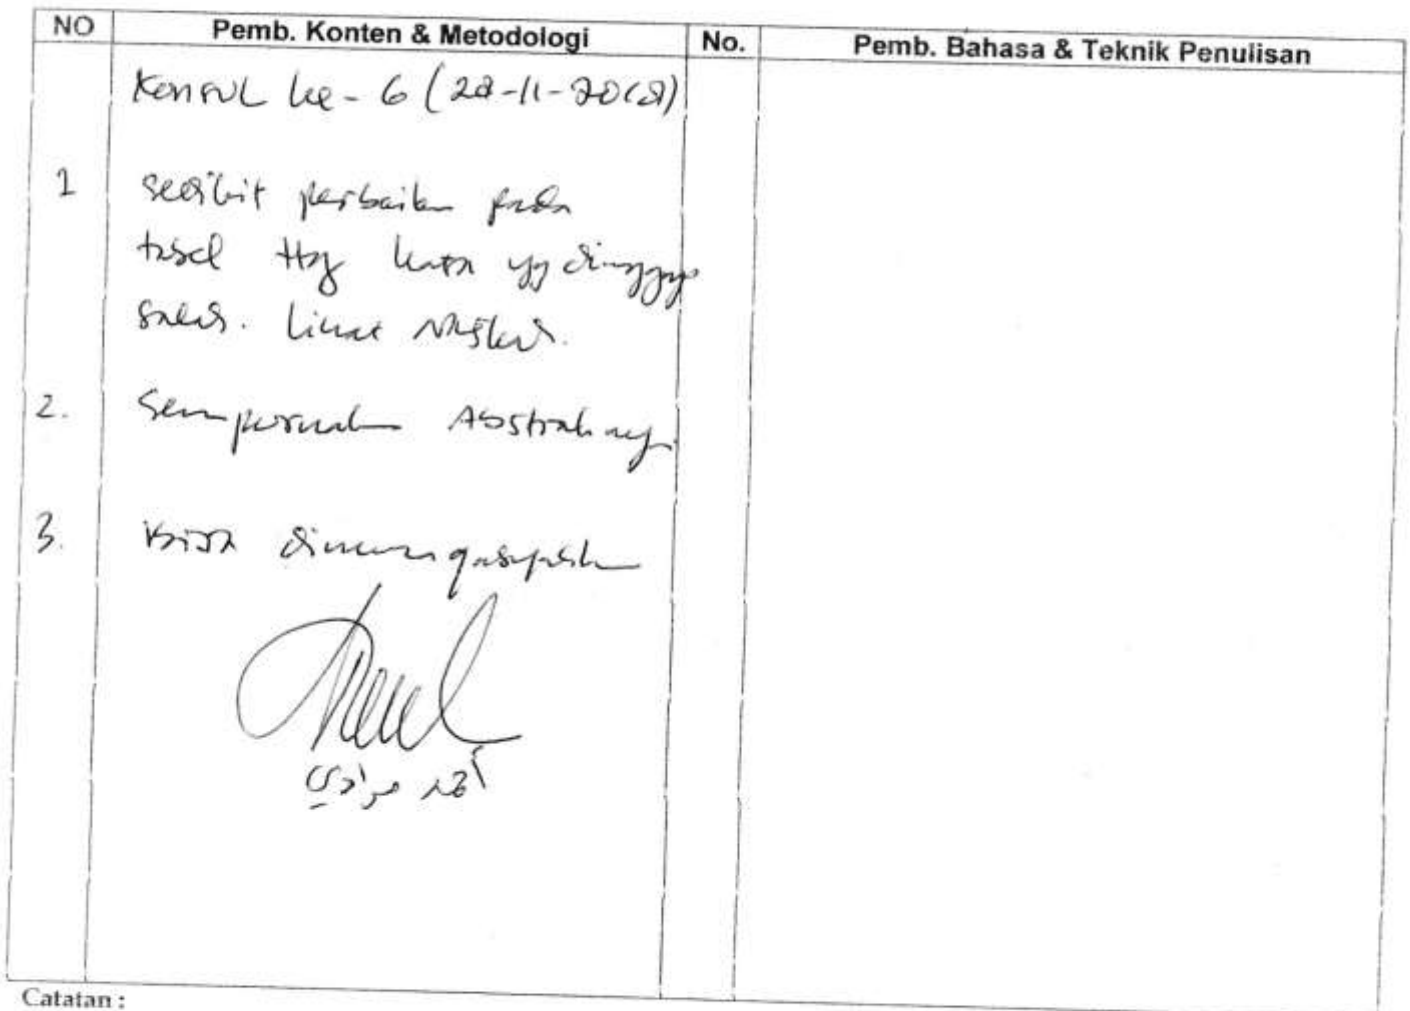 NO Pemb. Konten & Metodologi No. Pemb. Bahasa & Teknik Penulisan
Konsul ke-6 (28-11-2018)
1 sedikit perbaikan pada
tabel ttg kata yg dianggap
salah. Lihat Naskah.
2. Sempurnakan Abstraknya.
3. Bisa dimunaqasyahkan
Catatan :